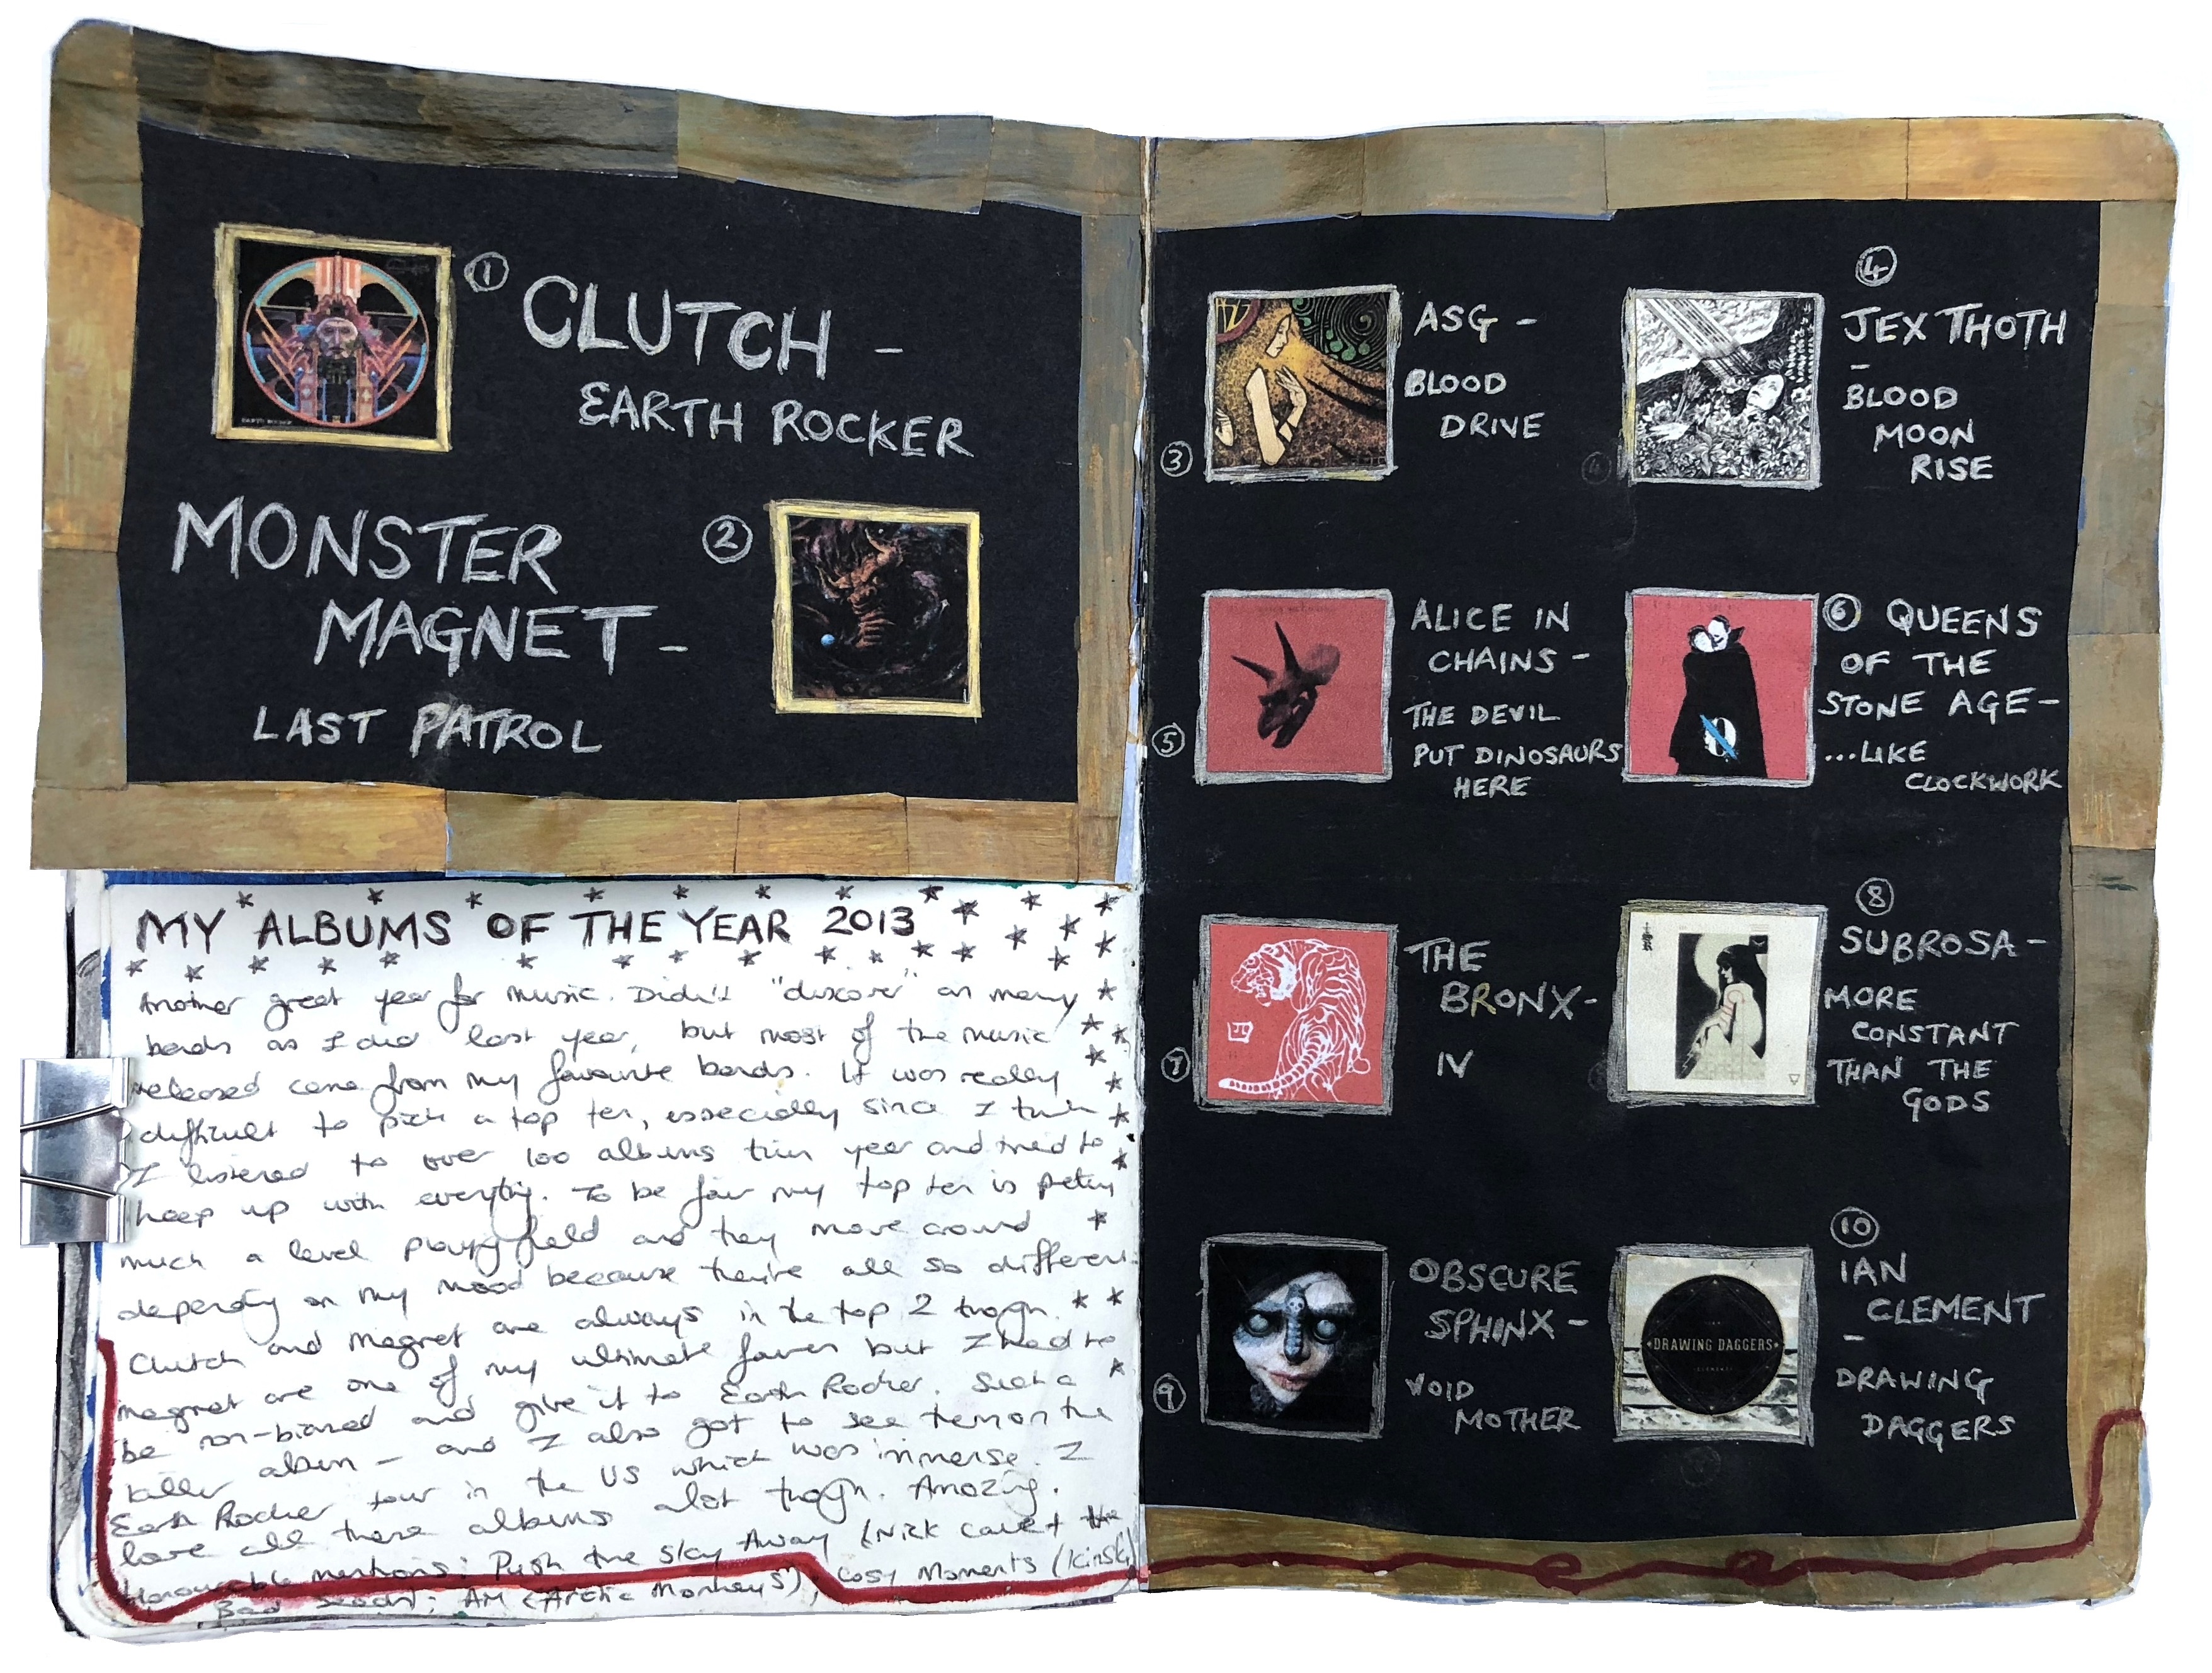 ①
CLUTCH -
EARTH ROCKER
MONSTER
②
MAGNET -
LAST PATROL
MY ALBUMS OF THE YEAR 2013
Another great year for music. Didn't "discover" as many
bands as I did last year, but most of the music
released came from my favourite bands. It was really
difficult to pick a top ten, especially since I think
I listened to over 100 albums this year and tried to
keep up with everything. To be fair my top ten is pretty
much a level playing field and they move around
depending on my mood because they're all so different.
Clutch and Magnet are always in the top 2 though.
Magnet are one of my ultimate faves but I had to
be non-biased and give it to Earth Rocker. Such a
killer album - and I also got to see them on the
Earth Rocker tour in the US which was immense. I
love all these albums alot though. Amazing.
Honourable mentions: Push the Sky Away (Nick Cave + the
Bad Seeds); AM (Arctic Monkeys), Cosy Moments (Kinski)
③
ASG -
BLOOD
DRIVE
④
JEX THOTH
-
BLOOD
MOON
RISE
⑤
ALICE IN
CHAINS -
THE DEVIL
PUT DINOSAURS
HERE
⑥ QUEENS
OF THE
STONE AGE -
...LIKE
CLOCKWORK
⑦
THE
BRONX -
IV
⑧
SUBROSA -
MORE
CONSTANT
THAN THE
GODS
⑨
OBSCURE
SPHINX -
VOID
MOTHER
⑩
IAN
CLEMENT
-
DRAWING
DAGGERS
DRAWING DAGGERS